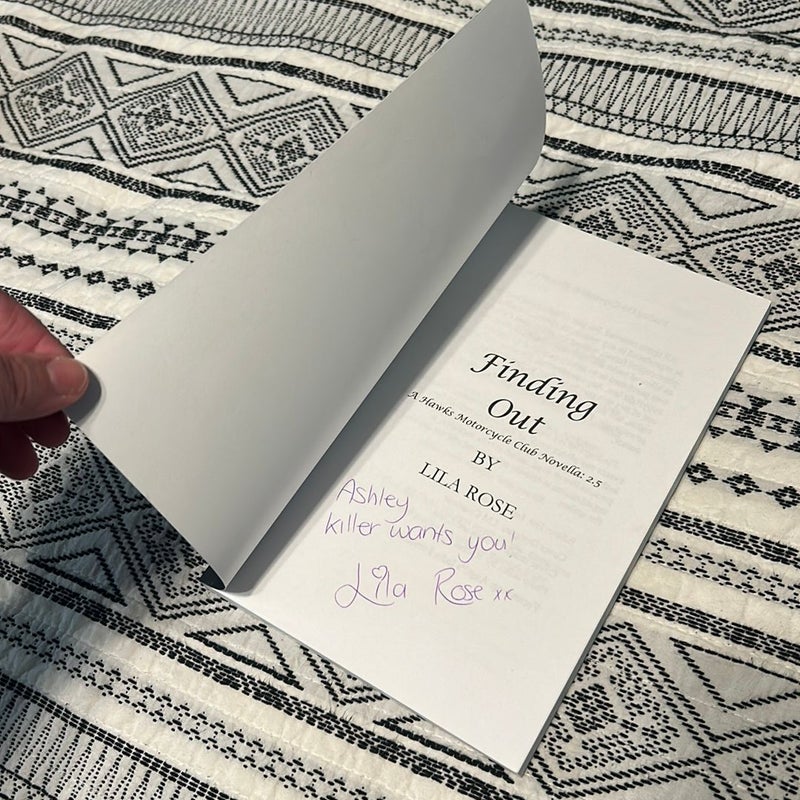 Finding
Out
A Hawks Motorcycle Club Novella: 2.5
BY
LILA ROSE
Ashley
killer wants you!
Lila Rose xx